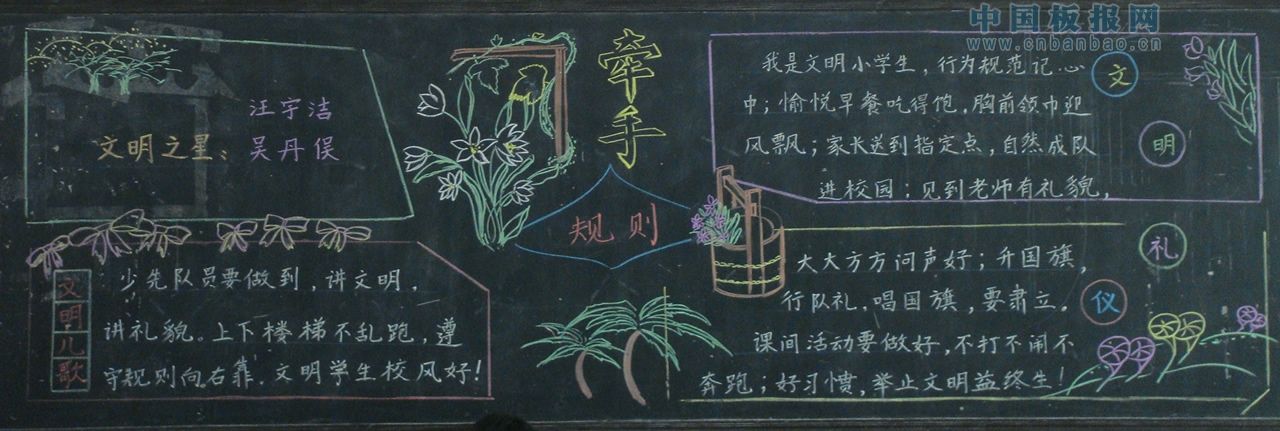 中国板报网
www.cnbanbao.cn
文明之星：
汪宇洁
吴丹俣
牵手
规则
文明儿歌
少先队员要做到，讲文明，
讲礼貌。上下楼梯不乱跑，遵
守规则向右靠．文明学生校风好！
文明礼仪
我是文明小学生，行为规范记心
中；愉悦早餐吃得饱，胸前领巾迎
风飘；家长送到指定点，自然成队
进校园；见到老师有礼貌，
大大方方问声好；升国旗，
行队礼，唱国旗，要肃立。
课间活动要做好，不打不闹不
奔跑；好习惯，举止文明益终生！